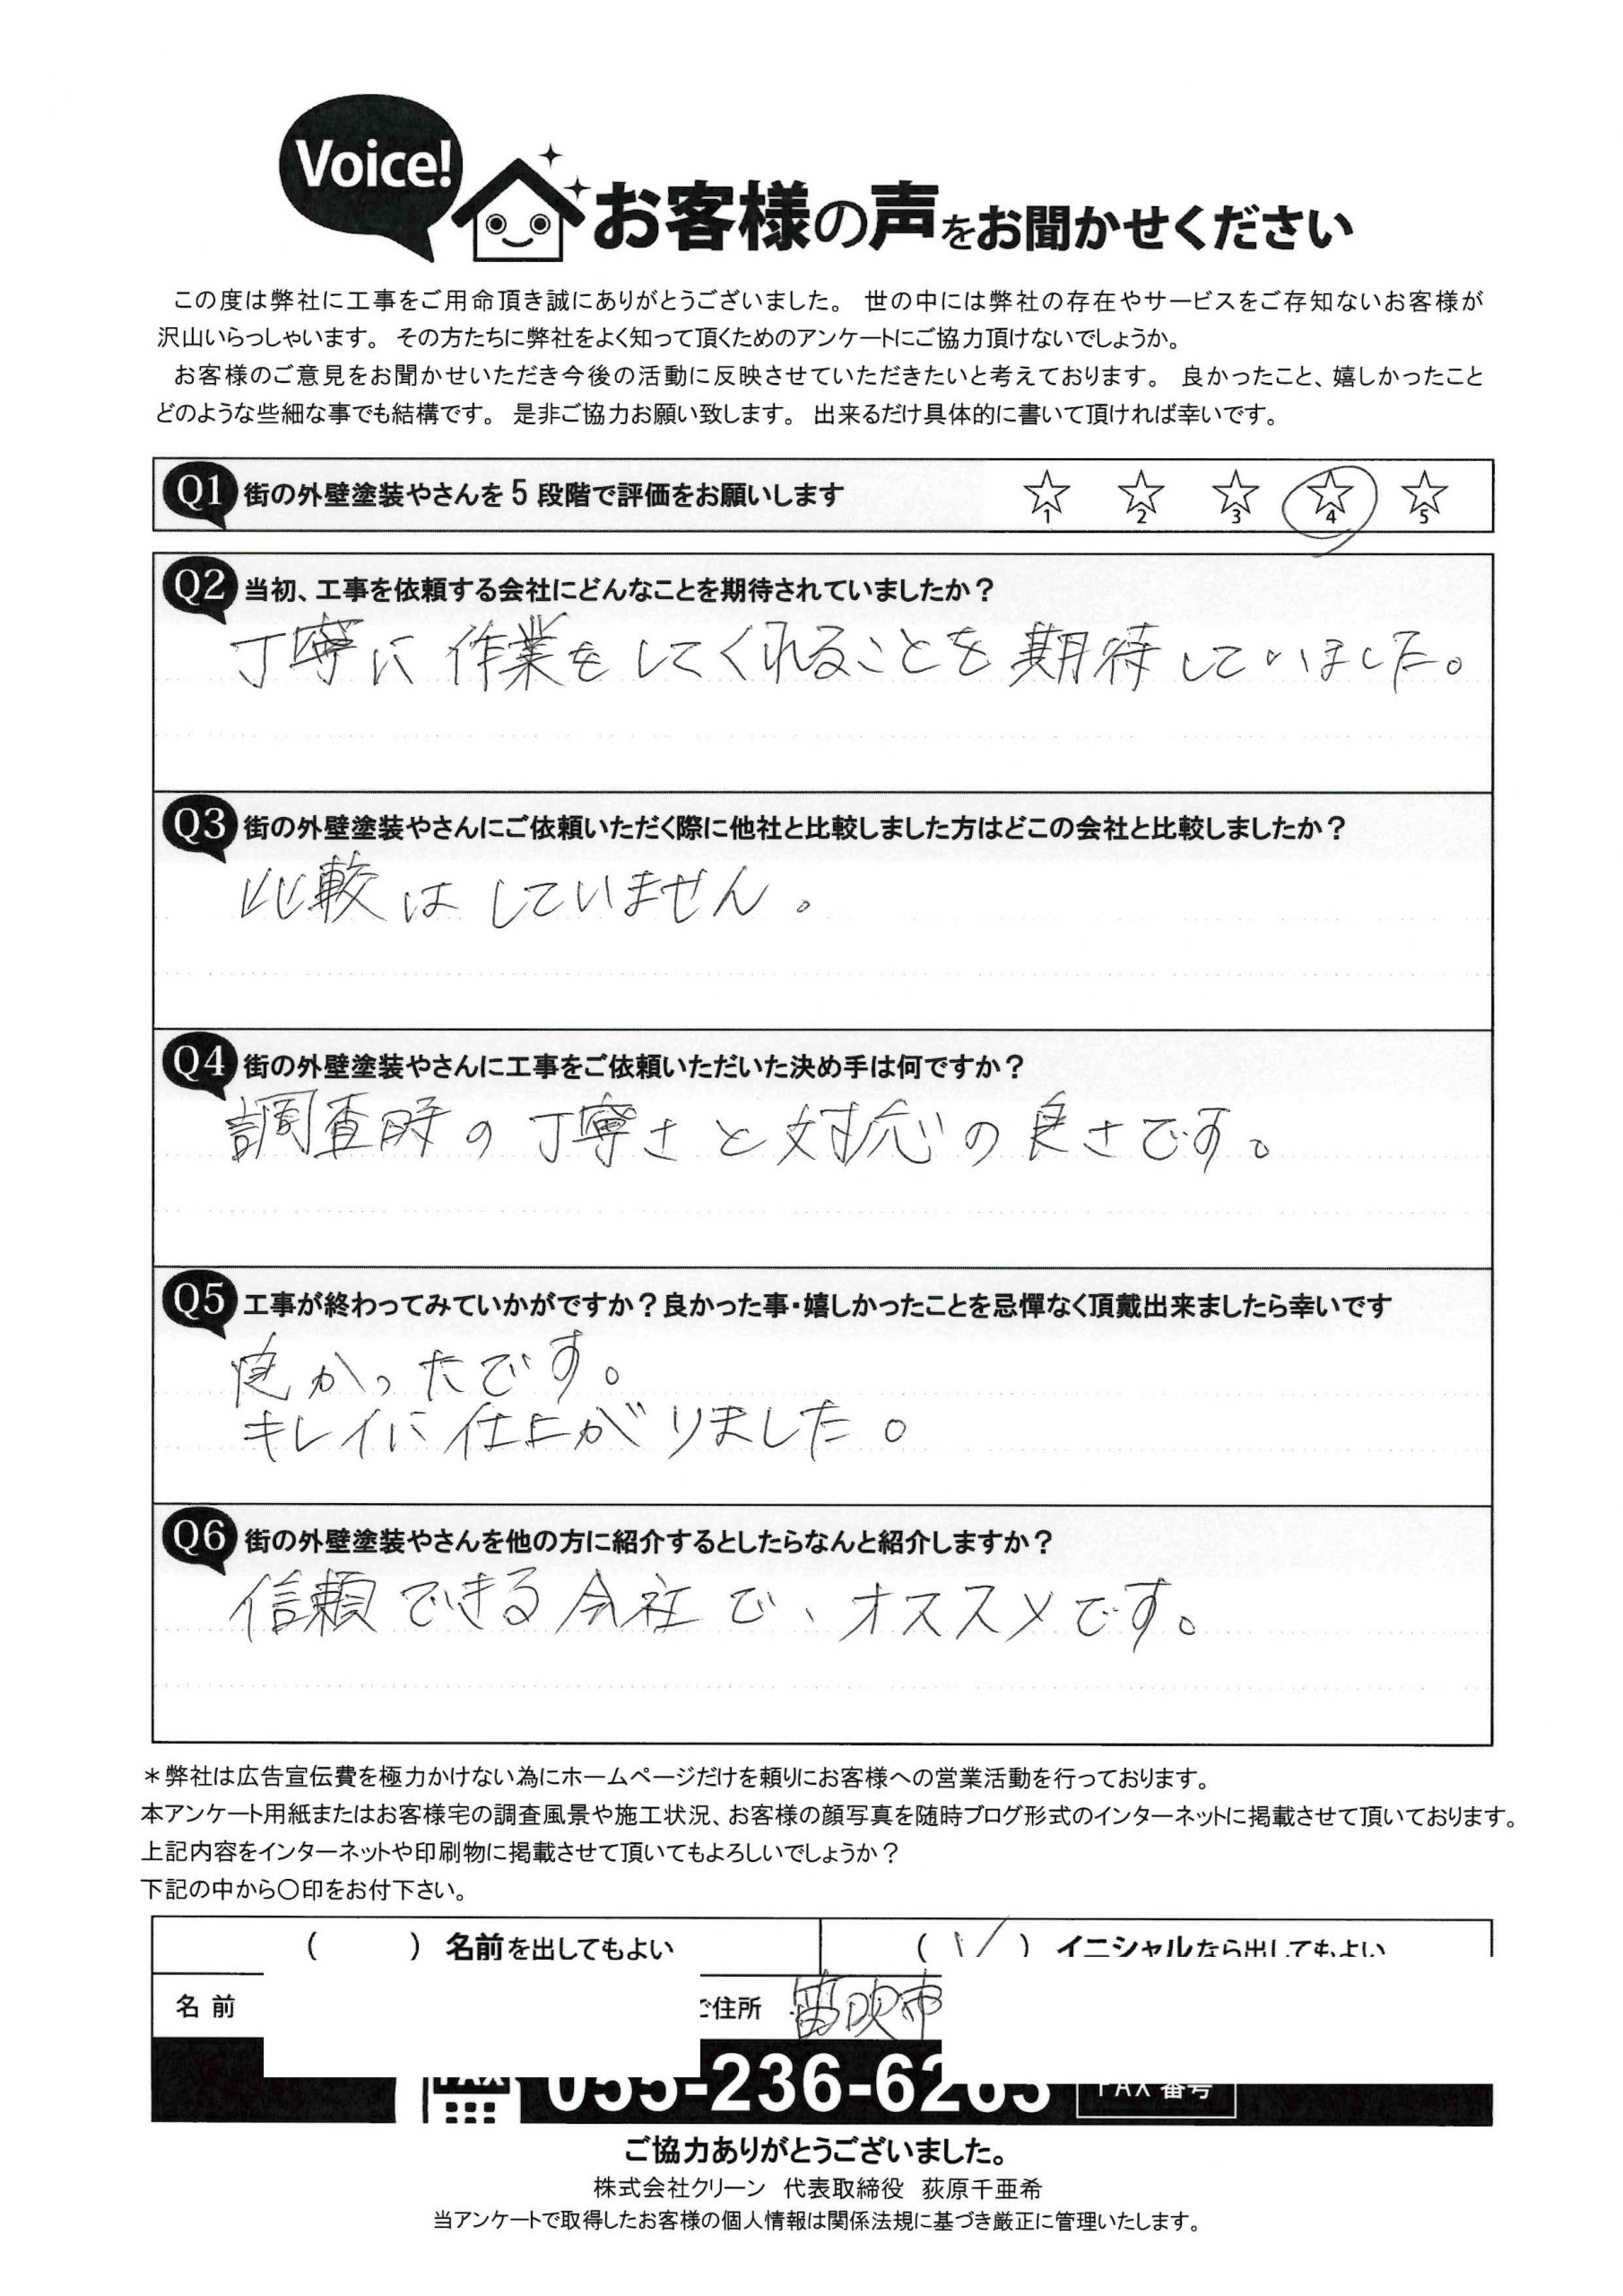 Voice!
お客様の声をお聞かせください
この度は弊社に工事をご用命頂き誠にありがとうございました。 世の中には弊社の存在やサービスをご存知ないお客様が
沢山いらっしゃいます。 その方たちに弊社をよく知って頂くためのアンケートにご協力頂けないでしょうか。
お客様のご意見をお聞かせいただき今後の活動に反映させていただきたいと考えております。 良かったこと、嬉しかったこと
どのような些細な事でも結構です。 是非ご協力お願い致します。 出来るだけ具体的に書いて頂ければ幸いです。
Q1 街の外壁塗装やさんを5段階で評価をお願いします ☆1 ☆2 ☆3 ☆4 ☆5
Q2 当初、工事を依頼する会社にどんなことを期待されていましたか？
丁寧に作業をしてくれることを期待していました。
Q3 街の外壁塗装やさんにご依頼いただく際に他社と比較しました方はどこの会社と比較しましたか？
比較はしていません。
Q4 街の外壁塗装やさんに工事をご依頼いただいた決め手は何ですか？
調査時の丁寧さと対応の良さです。
Q5 工事が終わってみていかがですか？良かった事・嬉しかったことを忌憚なく頂戴出来ましたら幸いです
良かったです。
キレイに仕上がりました。
Q6 街の外壁塗装やさんを他の方に紹介するとしたらなんと紹介しますか？
信頼できる会社で、オススメです。
＊弊社は広告宣伝費を極力かけない為にホームページだけを頼りにお客様への営業活動を行っております。
本アンケート用紙またはお客様宅の調査風景や施工状況、お客様の顔写真を随時ブログ形式のインターネットに掲載させて頂いております。
上記内容をインターネットや印刷物に掲載させて頂いてもよろしいでしょうか？
下記の中から〇印をお付下さい。
( ) 名前を出してもよい ( ✓ ) イニシャルなら出してもよい
名前 ご住所 笛吹市
FAX 055-236-6263 FAX 番号
ご協力ありがとうございました。
株式会社クリーン 代表取締役 荻原千亜希
当アンケートで取得したお客様の個人情報は関係法規に基づき厳正に管理いたします。